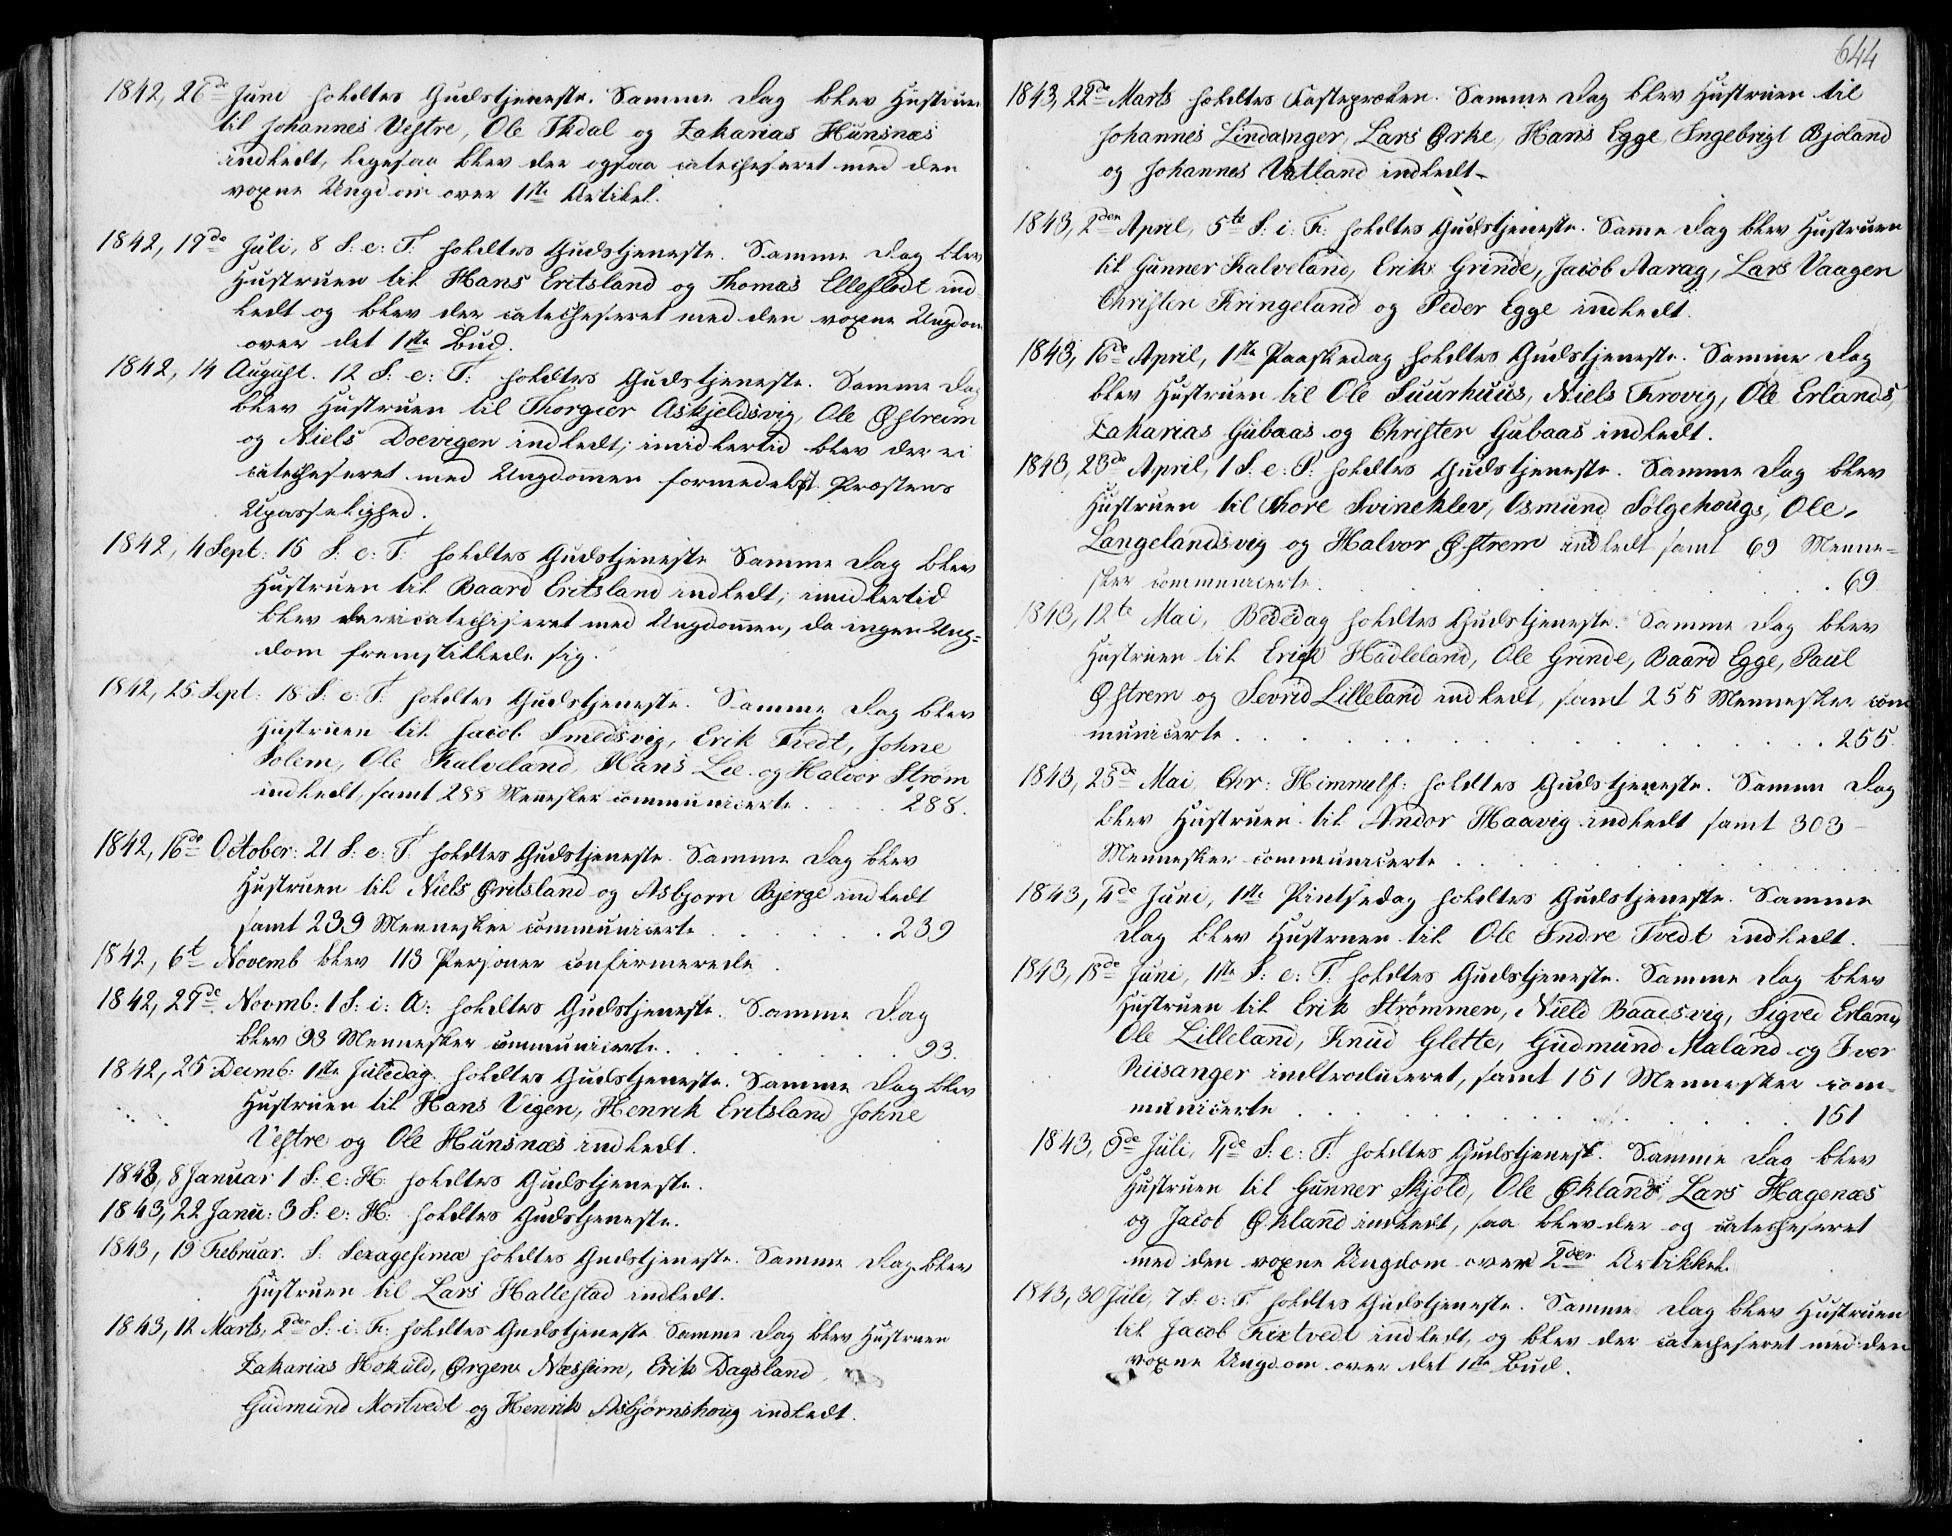 1842, 26de Juni holdtes Gudstjeneste. Samme Dag blev Hustruen
til Johannes Vestre, Ole Ikdal og Zakarias Hunsnæs
indledt, ligesaa blev der ogsaa catecheseret med den
voxne Ungdom over 1ste Artikel.
1842, 17de Juli, 8 S: e: T: holdtes Gudstjeneste. Samme Dag blev
Hustruen til Hans Eritsland og Thomas Elleflodt ind
ledt og blev der catecheseret med den voxne Ungdom
over det 1ste Bud.
1842, 14 August. 12 S: e: T: holdtes Gudstjeneste. Samme Dag
blev Hustruen til Thorgier Askjeldsvig, Ole Østreim
og Niels Doevigen indledt; imidlertid blev der ei
catecheseret med Ungdommen formedelst Præstens
Upasselighed.
1842, 4 Sept: 15 S: e: T: holdtes Gudstjeneste Samme Dag blev
Hustruen til Baard Eritsland indledt; imidlertid
blev der ei catechiseret med Ungdommen, da ingen Ung=
dom fremstillede sig.
1842, 25 Sept: 18 S: e: T: holdtes Gudstjeneste. Samme Dag blev
Hustruen til Jacob Smedsvig, Erik Tvedt, Johne
Solem, Ole Kalveland, Hans Lie og Halvor Strøm
indledt, samt 288 Mennesker communicerte . . . 288.
1842, 16de October: 21 S: e: T: holdtes Gudstjeneste. Samme Dag blev
Hustruen til Niels Øritsland og Asbjorn Bjerge indledt
samt 239 Mennesker communicerte . . . . 239
1842, 6te Novemb blev 113 Personer confirmerede.
1842, 27de Novmb: 1 S: i: A: holdtes Gudstjeneste. Samme Dag
blev 93 Mennesker communicerte . . . . . . 93.
1842, 25 Decmb: 1ste Juledag. holdtes Gudstjeneste. Samme Dag blev
Hustruen til Hans Vigen, Henrik Eritsland Johne
Vestre og Ole Hunsnæs indledt.
1843, 8 Januar 1 S: e: H: holdtes Gudstjeneste.
1843, 22 Janu: 3 S: e: H: holdtes Gudstjeneste.
1843, 19 Februar. S: Sexagesimæ holdtes Gudstjeneste. Samme Dag blev
Hustruen til Lars Hallestad indledt.
1843, 12 Marts, 2den S: i: F: holdtes Gudstjeneste Samme Dag blev Hustruen
Zakarias Hokald, Ørgen Næsheim, Erik Dagsland,
Gudmund Mortvedt og Henrik Asbjørnshoug indledt.
644
1843, 22de Marts holdtes Fasteprøken. Samme Dag blev Hustruen til
Johannes Lindanger, Lars Ørke, Hans Egge, Ingebrigt Bjoland
og Johannes Vatland indledt.
1843, 2den April, 5te S: i: F: holdtes Gudstjeneste. Same Dag blev Hustruen
til Gunner Kalveland, Erik Grinde, Jacob Aarag, Lars Vaagen
Christen Kringeland og Peder Egge indledt.
1843, 16de April, 1ste Paaskedag holdtes Gudstjeneste. Samme Dag
blev Hustruen til Ole Suurhuus, Niels Krovig, Ole Erlands,
Zakarias Gubaas og Christen Gubaas indledt.
1843, 23de April, 1 S: e: P: holdtes Gudstjeneste. Samme Dag blev
Hustruen til Thore Svineklev, Osmund Sølgehoug, Ole
Langelandsvig og Halvor Østrem indledt samt 69 Menne=
sker communicerte. . . . . . . . 69
1843, 12te Mai, Bededag holdtes Gudstjeneste. Samme Dag blev
Hustruen til Erik Hadleland, Ole Grinde, Baard Egge, Paul
Østrem og Sevrid Lilleland indledt, samt 255 Mennesker com
municerte . . . . . . . . . . . 255.
1843, 25de Mai, Chr: Himmelf: holdtes Gudstjeneste. Samme Dag
blev Hustruen til Andor Haavig indledt samt 303
Mennesker communicerte . . . . . . .
1843, 4de Juni, 1ste Pintsedag holdtes Gudstjeneste. Samme
Dag blev Hustruen til Ole Indre Tvedt indledt.
1843, 18de Juni, 1ste S: e: T: holdtes Gudstjeneste. Samme Dag blev
Hustruen til Erik Strømmen, Nield Baadsvig, Sigved Erland,
Ole Lilleland, Knud Glette, Gudmund Maland og Iver
Riisanger indtroduceret, samt 151 Mennesker com=
municerte . . . . . . . . . . . 151
1843, 9de Juli, 4de S: e: T: holdtes Gudstjenest. Samme Dag blev
Hustruen til Gunner Skjold, Ole Økland, Lars Hagenæs
og Jacob Økland indledt, saa blev der og catecheseret
med den voxne Ungdom over 2den Artikkel.
1843, 30 Juli, 7 S: e: T: holdtes Gudstjeneste. Samme Dag blev Hustruen
til Jacob Kixtvedt indledt, og blev der catecheseret med den
voxne Ungdom over det 1ste Bud.